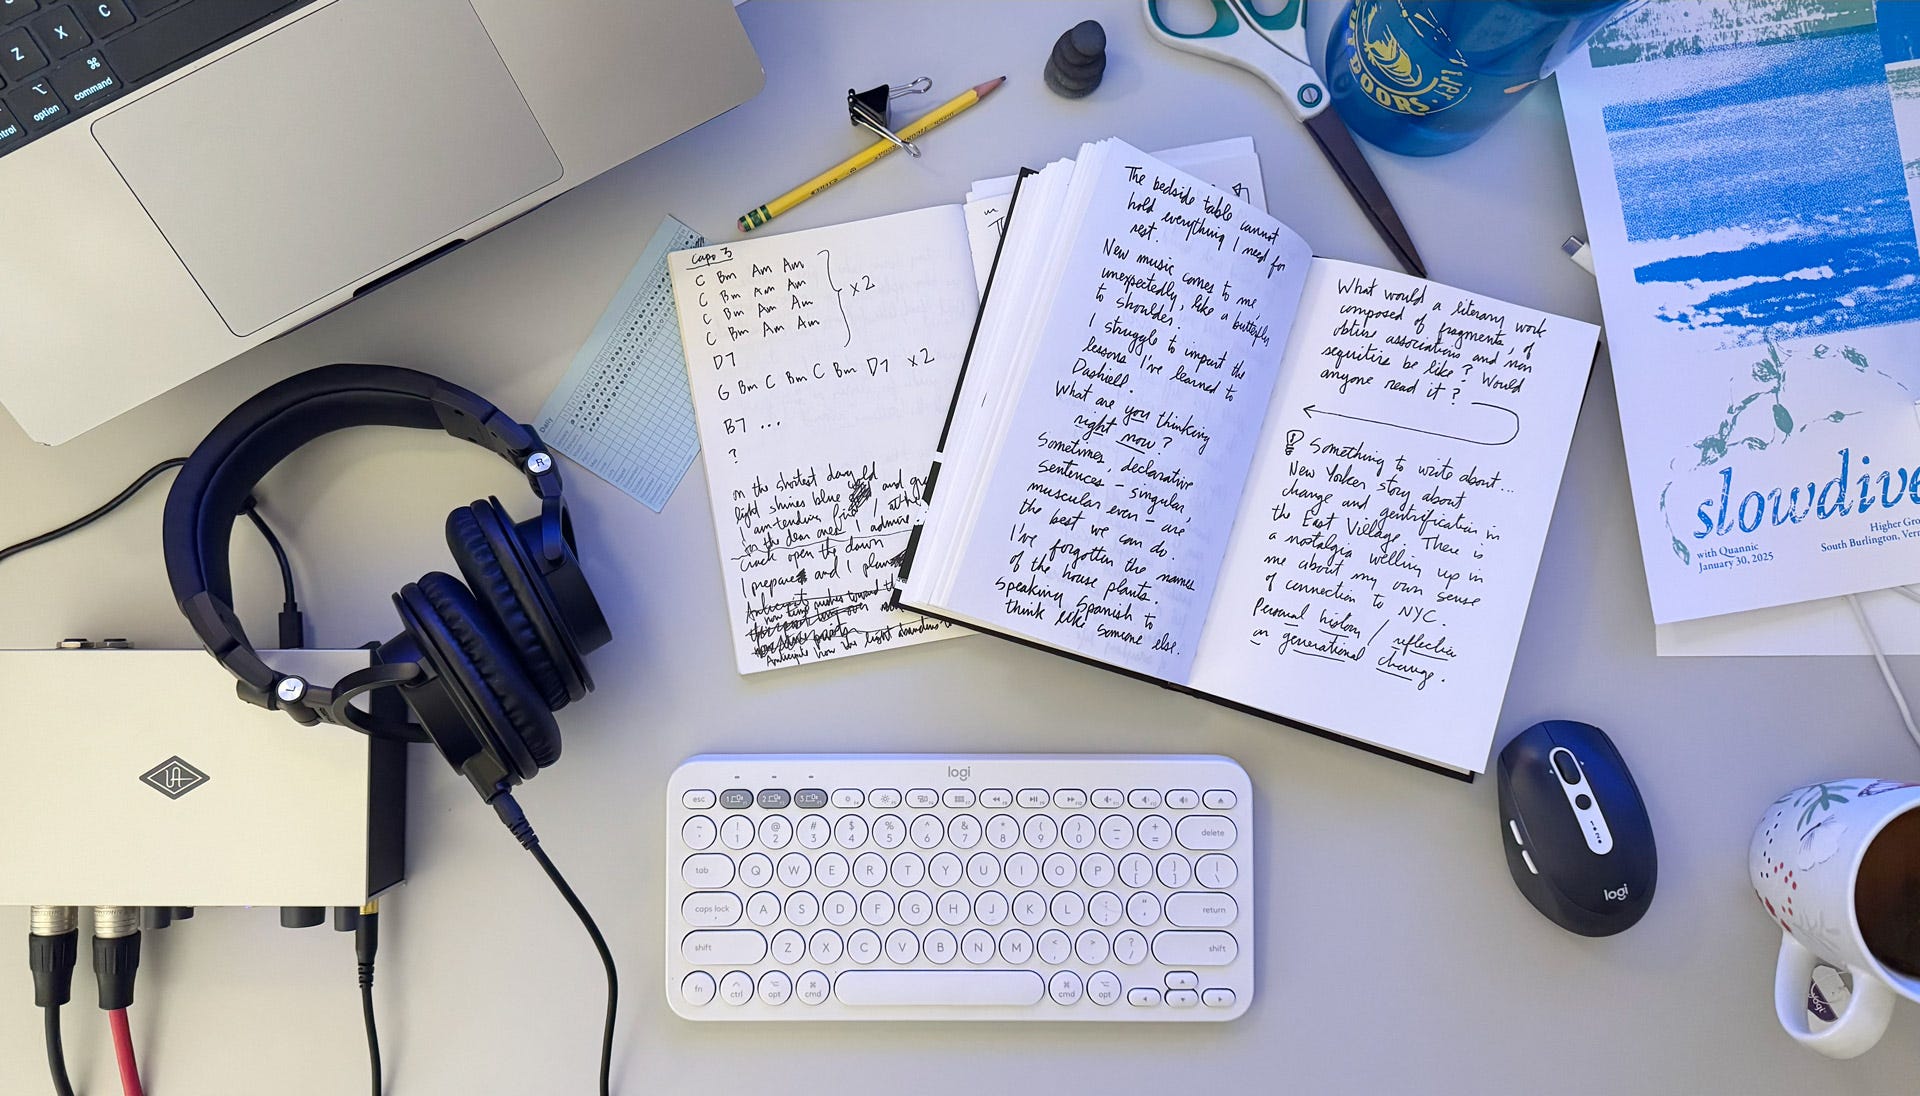 Z
X
C
control
option
⌘
command
R
L
UA
DOORS
Daily
Capo 3
C Bm Am Am
C Bm Am Am
C Bm Am Am
C Bm Am Am
x2
D7
G Bm C Bm C Bm D7 x2
B7 ...
?
on the shortest day
light shines blue and
I am tending
for the dear ones I admire
Crack open the dawn
I prepare and I
The bedside table cannot
hold everything I need for
rest.
New music comes to me
unexpectedly, like a butterfly
to shoulder.
I struggle to impart the
lessons I've learned to
Dashiell.
What are you thinking
right now?
Sometimes, declarative
sentences – singular,
muscular even – are
the best we can do.
I've forgotten the names
of the house plants.
Speaking Spanish to
think like someone else.
What would a literary work
composed of fragments, of
obtuse associations and non
sequiturs be like? Would
anyone read it?
Something to write about...
New Yorker story about
change and gentrification in
the East Village. There is
a nostalgia welling up in
me about my own sense
of connection to NYC.
Personal history / reflection
on generational change.
slowdive
with Quannic
January 30, 2025
Higher Gro
South Burlington, Verm
logi
esc 1 2 3
~ ! @ # $ % ^ & * ( ) _ +
\` 1 2 3 4 5 6 7 8 9 0 - = delete
tab Q W E R T Y U I O P { [ } ] | \
caps lock A S D F G H J K L : ; " ' return
shift Z X C V B N M < , > . ? / shift
fn ctrl opt cmd cmd opt
logi
yogi